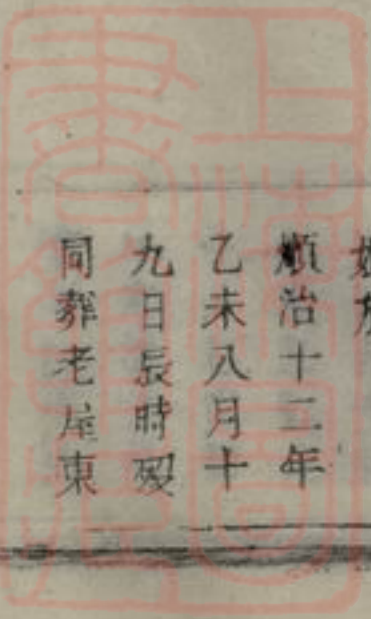 順治十二年
乙未八月十
九日辰時歿
同葬老屋東